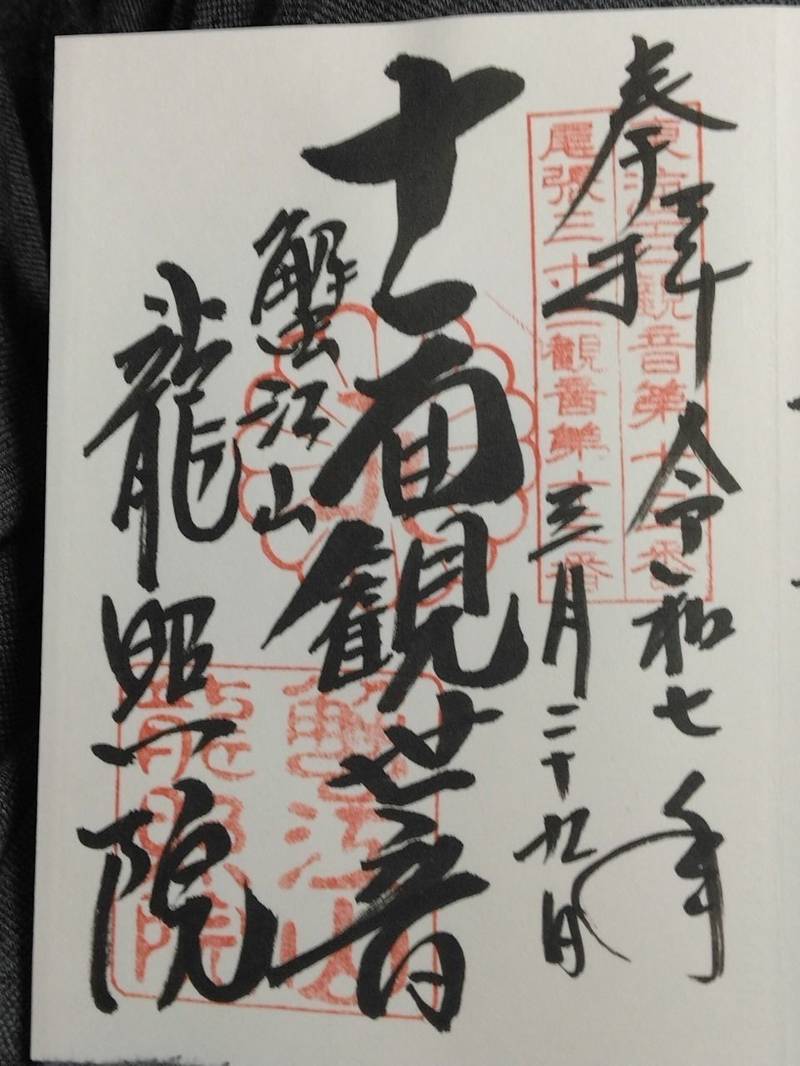 奉拝 令和七年
三月二十九日
東海百観音第十三番
尾張三十三観音第十三番
十一面観世音
蟹江山
龍照院
蟹江山
龍照院